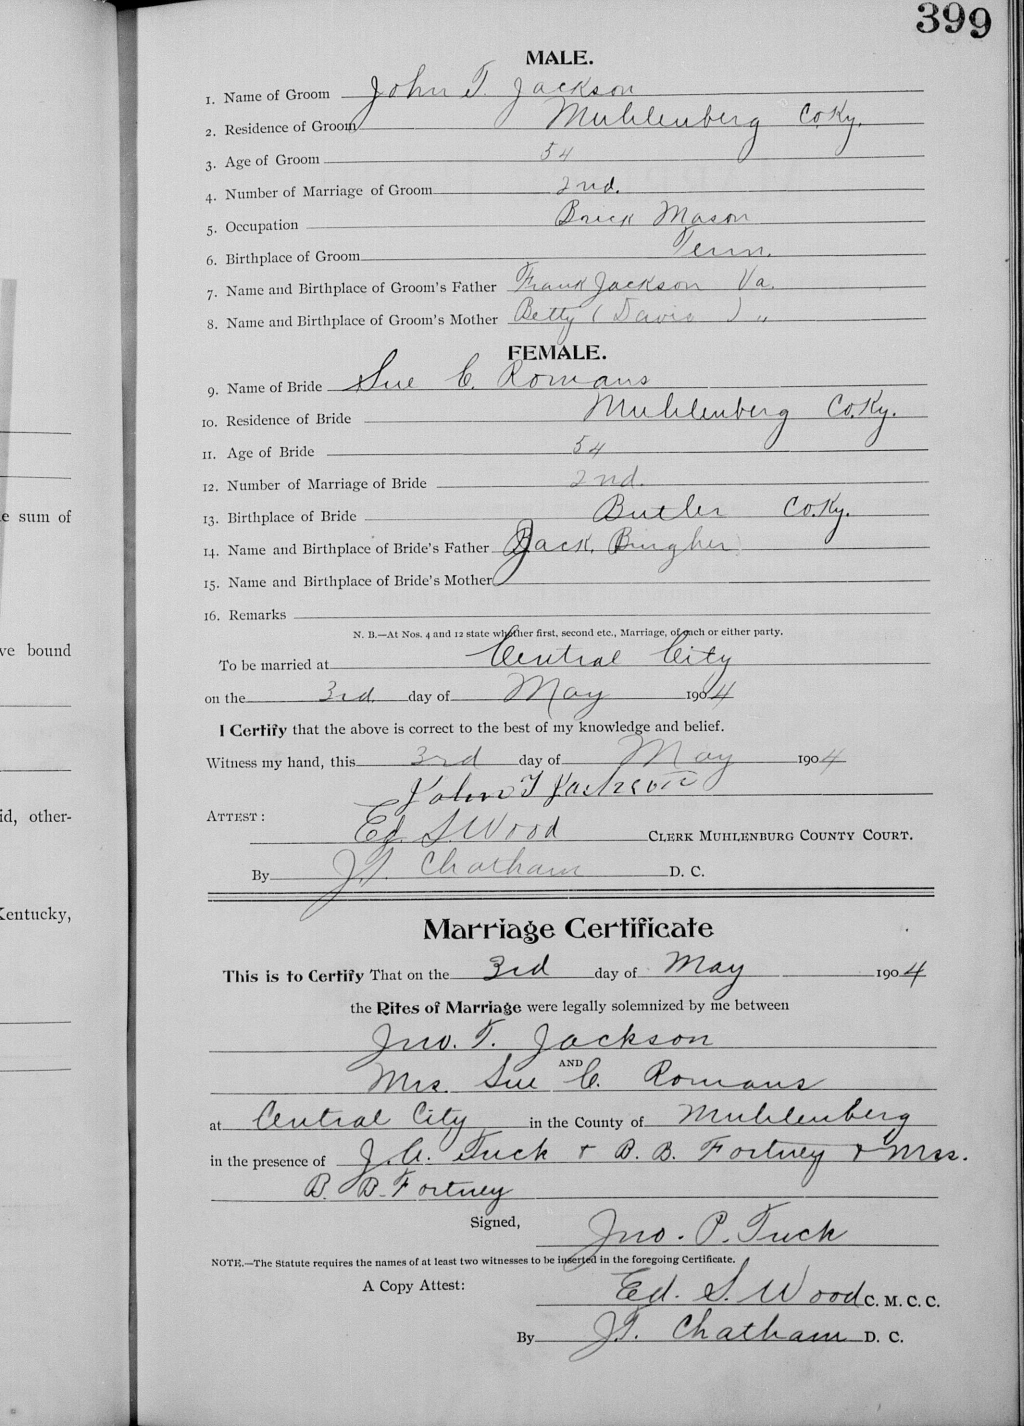 399
MALE.
1. Name of Groom John T. Jackson
2. Residence of Groom Muhlenberg Co. Ky.
3. Age of Groom 54
4. Number of Marriage of Groom 2nd.
5. Occupation Brick Mason
6. Birthplace of Groom Tenn.
7. Name and Birthplace of Groom's Father Frank Jackson Va.
8. Name and Birthplace of Groom's Mother Betty (Davis) "
FEMALE.
9. Name of Bride Sue C. Romans
10. Residence of Bride Muhlenberg Co. Ky.
11. Age of Bride 54
12. Number of Marriage of Bride 2nd.
13. Birthplace of Bride Butler Co. Ky.
e sum of
14. Name and Birthplace of Bride's Father Jack. Bingher
15. Name and Birthplace of Bride's Mother
16. Remarks
N. B.—At Nos. 4 and 12 state whether first, second etc., Marriage, of each or either party.
ve bound
To be married at Central City
on the 3rd. day of May 1904
I Certify that the above is correct to the best of my knowledge and belief.
Witness my hand, this 3rd day of May 1904
John T Jackson
id, other-
ATTEST:
Ed. S. Wood CLERK MUHLENBURG COUNTY COURT.
By J.T. Chatham D. C.
Kentucky,
Marriage Certificate
This is to Certify That on the 3rd day of May 1904
the Rites of Marriage were legally solemnized by me between
Jno. T. Jackson
AND
Mrs. Sue C. Romans
at Central City in the County of Muhlenberg
in the presence of Tuck & B. B. Fortney & Mrs.
B. B. Fortney
Signed,
Jno. P. Tuck
NOTE.—The Statute requires the names of at least two witnesses to be inserted in the foregoing Certificate.
A Copy Attest:
Ed. S. Wood C. M. C. C.
By J.T. Chatham D. C.